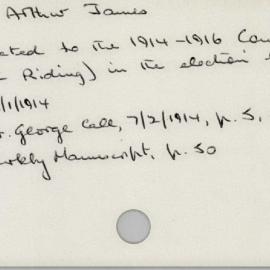 Arthur James
cted to the 1914-1916 Cou
Riding) in the election
/1/1914
r. George Call, 7/2/1914, p. 5,
erkly Manuscript, p. 50